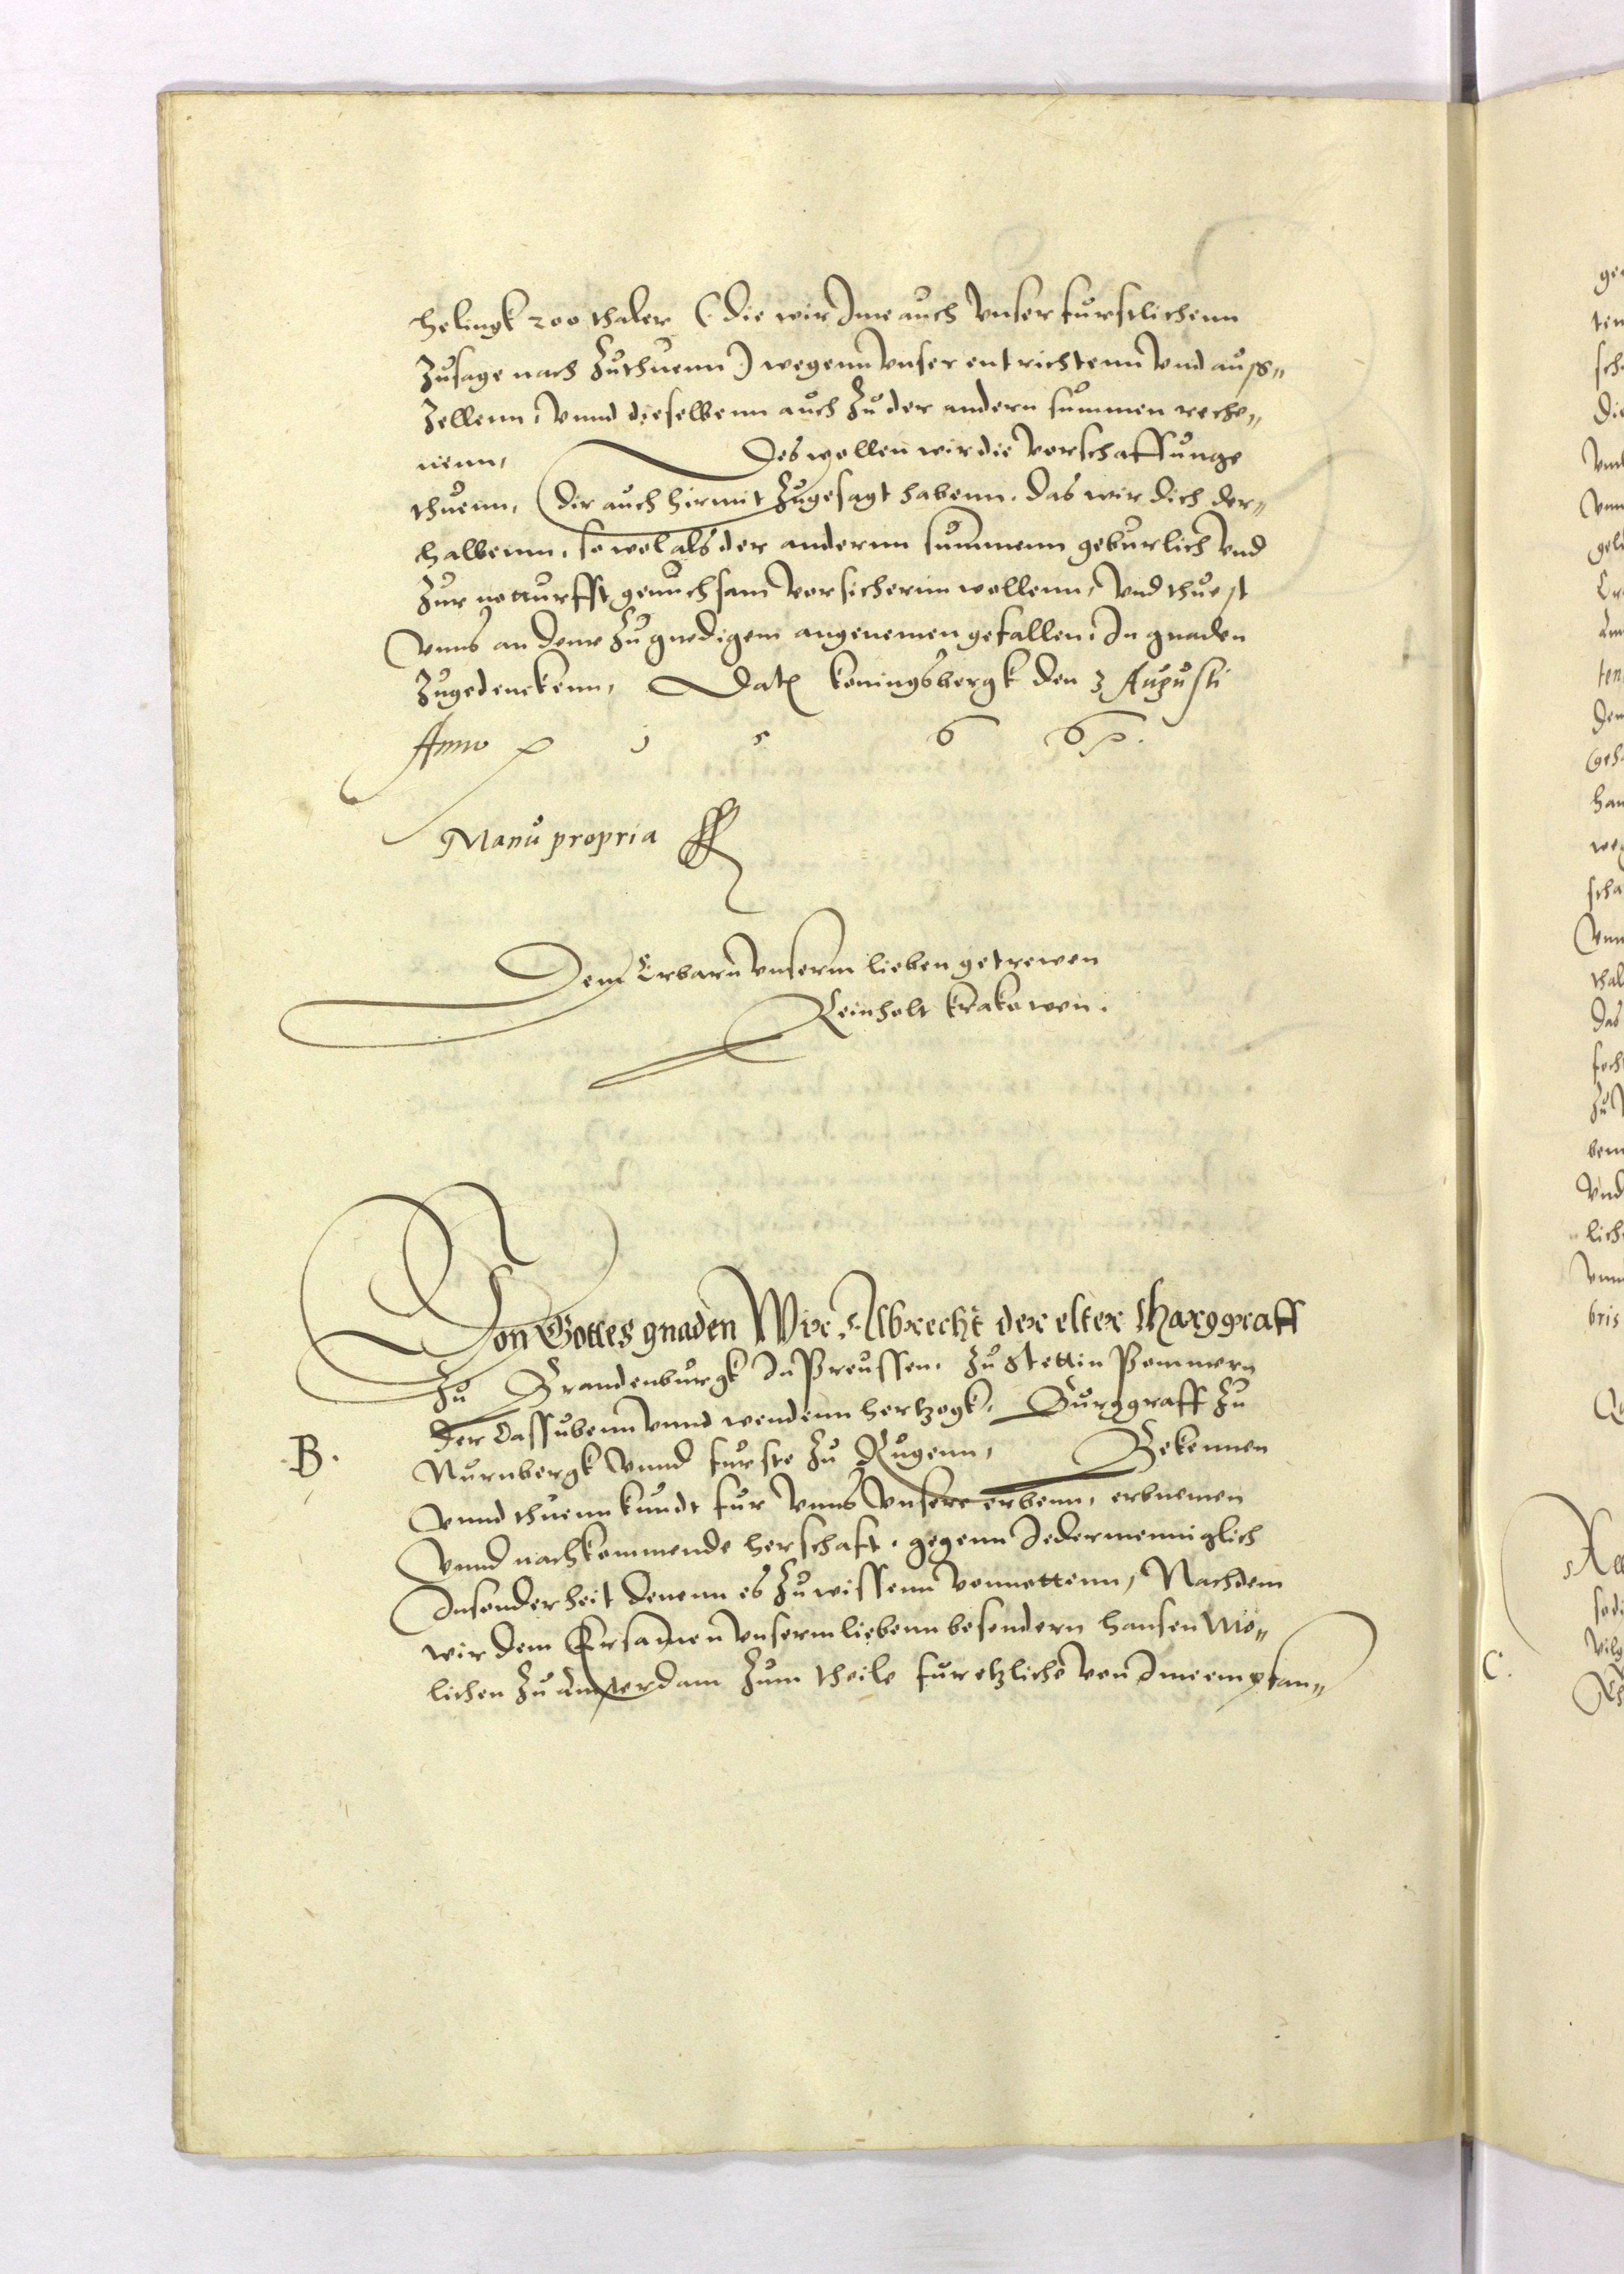 helingk 200 thaler (die wir Ime auch Unser furstlichenn
Zusage nach Zuthuenn) wegenn Unser entrichtenn Und auss„
Zellenn, Unnd dieselbenn auch Zu der andern summen reche„
nenn, Des wollen wir die Vorschaffunge
thuenn, dir auch hirmit Zugesagt habenn. das wir dich der„
halbenn, so wol als der andernn summenn geburlich Und
Zur notturfft genuchsam Vorsichernn wollenn, Und thuest
Unns an deme Zu gnedigem angenemen gefallen, In gnaden
Zugedenckenn, Dat) koningsbergk den 3 Augusti
Anno 1 5 6 6.
Manu propria
Dem Erbarn Unserm lieben getrewen
Reinholt krakowen.
Von Gottes gnaden Wir Albrecht der elter Marggraff
Zu Brandenburgk In Preussen, Zu Stettin Pommern
der Cassubenn Unnd wendenn hertzogk, Burggraff Zu
B. Nurnbergk Unnd furste Zu Rugenn, Bekennen
Unnd thuenn kundt fur Unns Unsere erbenn, erbnemen
Unnd nachkommende herschaft, gegenn Jedermenniglich
Insonderheit denenn es Zuwissenn Vonnottenn, Nachdem
wir dem Ersamen Unserm liebenn besondern hansen Mo„
lichen Zu Amsterdam Zum theile fur etzliche Von Ime empfan„
C.